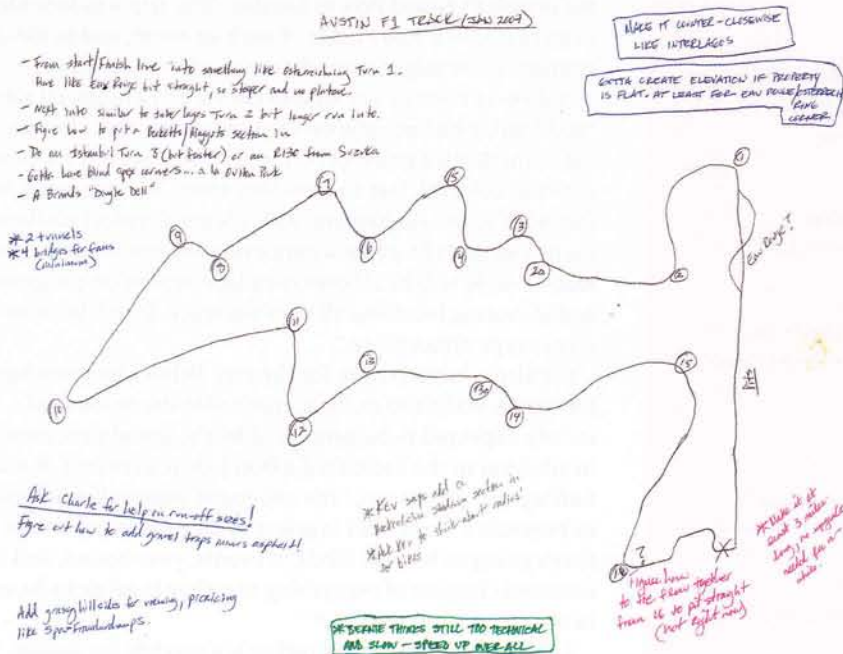 AUSTIN F1 TRACK (JAN 2007)
MAKE IT COUNTER-CLOSEWISE
LIKE INTERLAGOS
GOTTA CREATE ELEVATION IF PROPERTY
IS FLAT. AT LEAST FOR EAU ROUGE/OSTERREICH
RING
CORNER
- From start/finish line into something like Osterreichring Turn 1.
Have like Eau Rouge but straight, so steeper and no plateau.
- Next into similar to Interlagos Turn 2 but longer run into.
- Figure how to put a Becketts/Maggots section in
- Do an Istanbul Turn 8 (but faster) or an R130 from Suzuka
- Gotta have blind apex corners... a la Oulton Park
- A Brands "Dingle Dell"
* 2 tunnels
* 4 bridges for fans
(minimum)
1
2
2a
3
4
5
6
7
8
9
10
11
12
13
13a
14
15
16
Eau Rouge?
S/F
?
Ask Charlie for help on run-off sizes!
Figure out how to add gravel traps inners asphalt
Add grassy hillsides for viewing, picnicing
like Spa-Francorchamps.
* Kev says add a
stadium section in
* Ask Kev to think about radius'
for bikes
Figure how
to tie them together
from 16 to pit straight
(not right now)
* Make it at
least 3 miles
long; no upgrade
needed for a
while.
* BERNIE THINKS STILL TOO TECHNICAL
AND SLOW - SPEED UP OVERALL